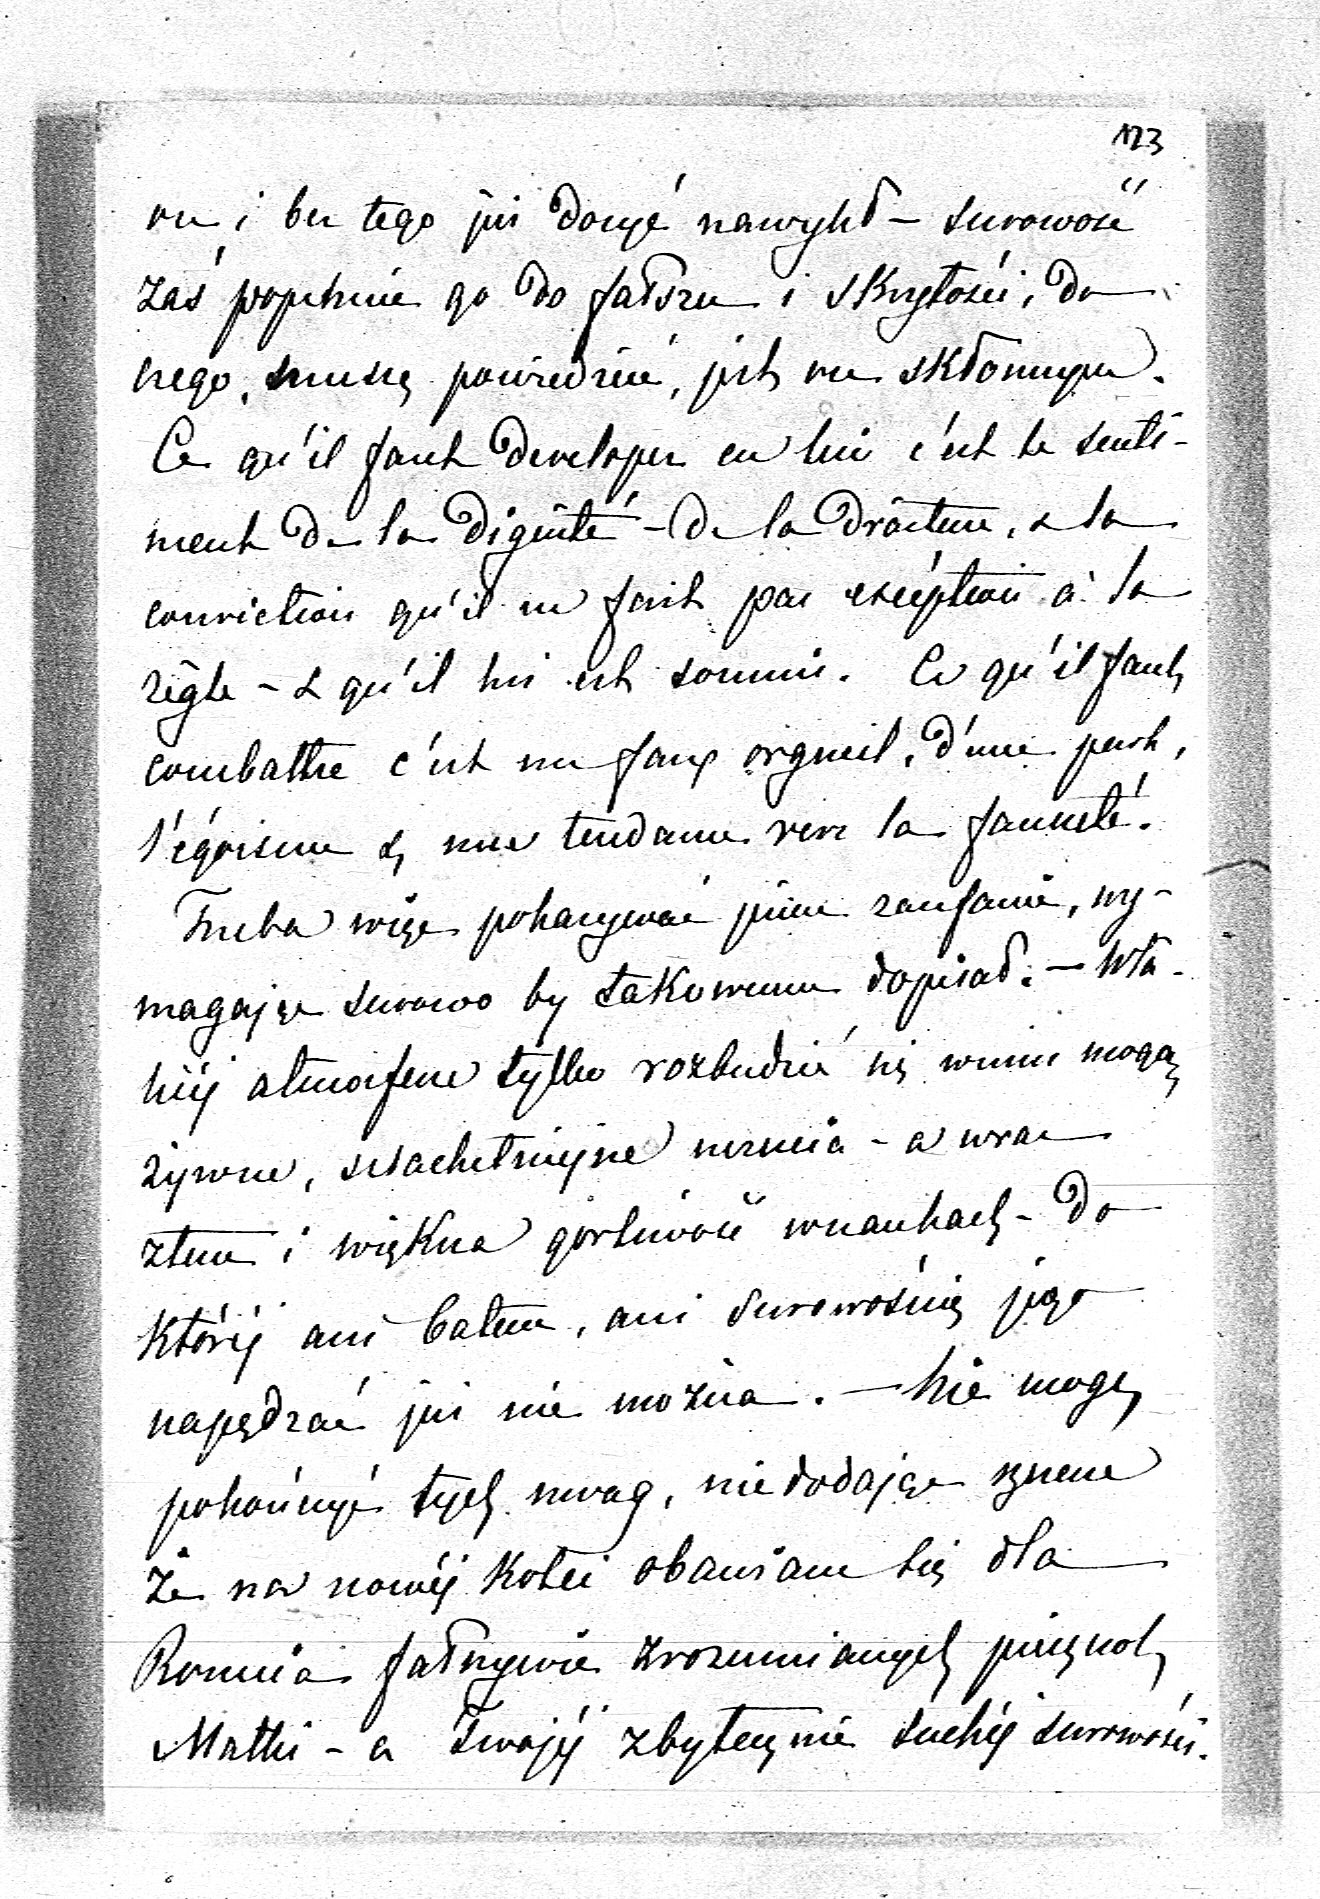 123
on i bez tego już dosyć nawykł – surowość
zaś popchnie go do fałszu i skrytości, do
czego, muszę powiedzieć, jest on skłonnym.
Ce qu'il faut developer en lui c'est le senti-
ment de la dignité – de la droiture, & la
conviction qu'il ne fait pas excéption à la
règle – & qu'il lui est soumis. Ce qu'il faut
combattre c'est un faux orgueil, d'une part,
l'égoisme & une tendance vers la fausseté.
Trzeba więc pokazywać jemu zaufanie, wy-
magając surowo by takowemu dopisał. – W ta-
kiéj atmosferze tylko rozbudzić się w nim mogą
żywsze, szlachetniejsze uczucia – a wraz
z tem i większa gorliwość w naukach – do
któréj ani batem, ani surowością jego
napędzać już nie można. – Nie mogę
pokończyć tych uwag, nie dodając szczerze
że na nowéj kolei obawiam się dla
Romcia fałszywie zrozumianych pieszczot
Matki – a Twojéj zbytecznie suchéj surowości.